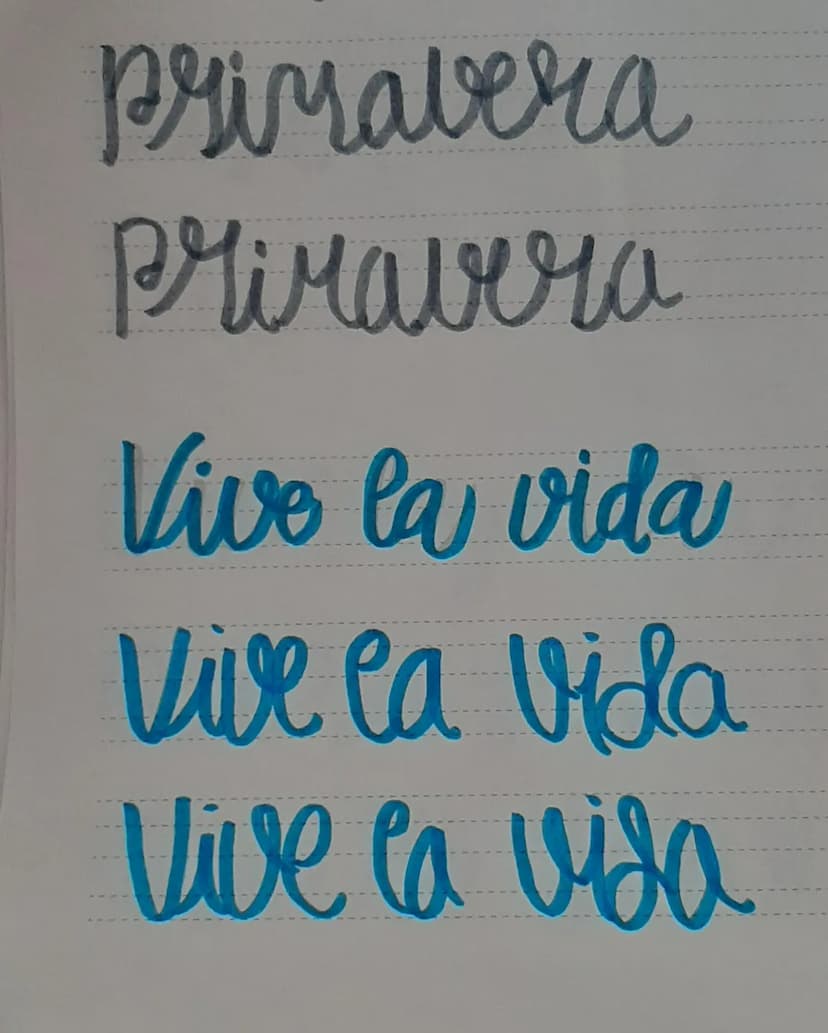 primavera
primavera
Vivo la vida
Vive la vida
Vive la vida